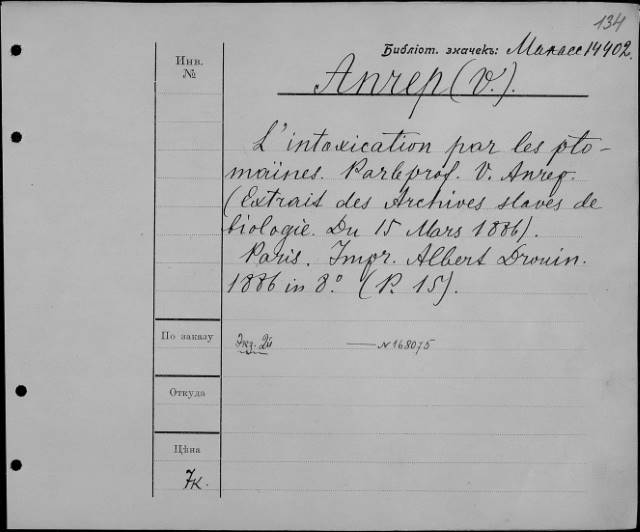 134
Библіот. значекъ: Манасс 14902.
Инв.
№
Anrep (V.).
L'intoxication par les pto-
maïnes. Par le prof. V. Anrep.
(Extrait des Archives slaves de
biologie. Du 15 Mars 1886).
Paris. Impr. Albert Drouin.
1886 in 8.° (P. 15).
По заказу
Экз. 2й — N 168075
Откуда
Цѣна
7к.